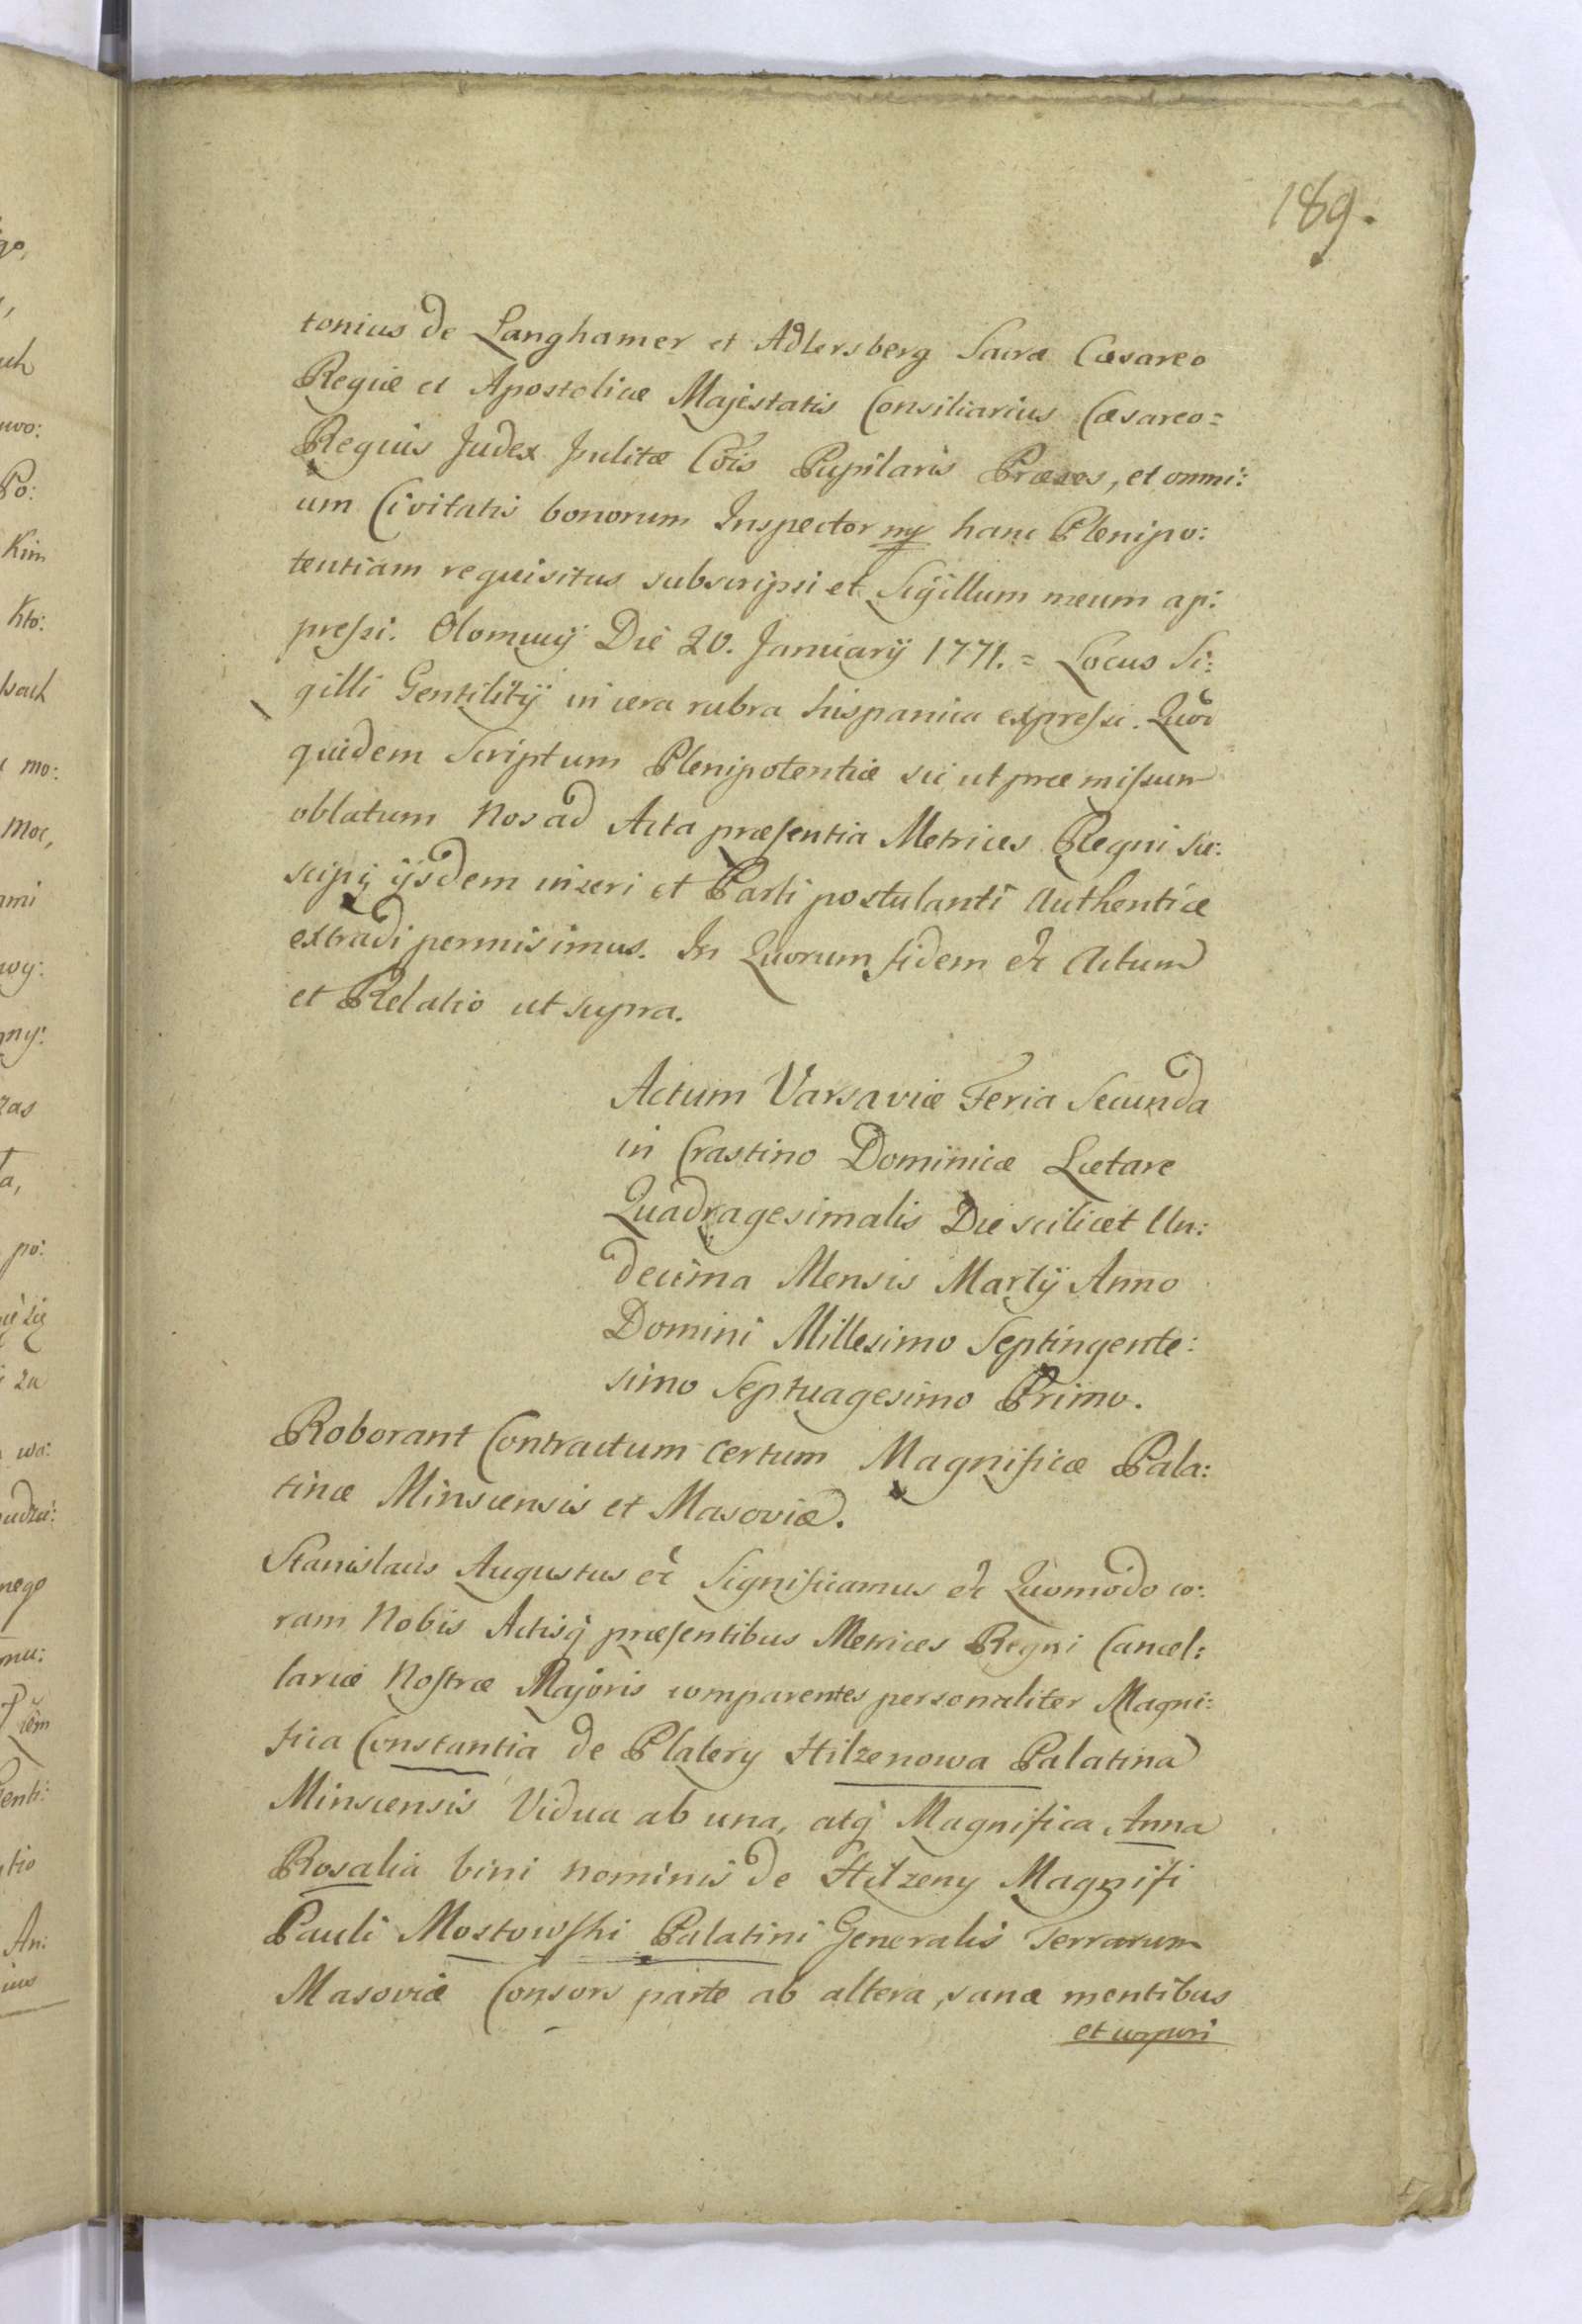 189.
tonius de Langhamer et Adlersberg Sacræ Cæsareo
Regiæ et Apostolicæ Majestatis Consiliarius Cæsareo=
Regius Judex Cois Pupilaris Præses, et omni:
um Civitatis bonorum Inspector mp hanc Plenipo:
tentiam requisitus subscripsi et Sigillum meum ap:
pressi. Olomucij Die 20. Januarij 1771. = Locus Si:
gilli Gentilitij in cera rubra hispanica expressi. Quod
quidem Scriptum Plenipotentiæ sic ut præmissum
oblatum Nos ad Acta præsentia Metrices Regni sus:
scipi ijsdem inseri et Parti postulanti Authentice
extradi permisimus. In Quorum fidem &c Actum
et Relatio ut supra.
Actum Varsaviæ Feria Secunda
in Crastino Dominicæ Lætare
Quadragesimalis Die scilicet Un:
decima Mensis Martij Anno
Domini Millesimo Septingente:
simo Septuagesimo Primo.
Roborant Contractum certum Magnificæ Pala:
tinæ Minscensis et Masoviæ.
Stanislaus Augustus &c Significamus &c Quomodo co:
ram Nobis Actisq præsentibus Metrices Regni Cancel:
lariæ Nostræ Majoris comparentes personaliter Magni:
fica Constantia de Platery Hilzenowa Palatina
Minscensis Vidua ab una, atq Magnifica Anna
Rosalia bini nominis de Hilzeny Magnifi
Pauli Mostowski Palatini Generalis Terrarum
Masoviæ Consors parte ab altera, sanæ mentibus
et corpori